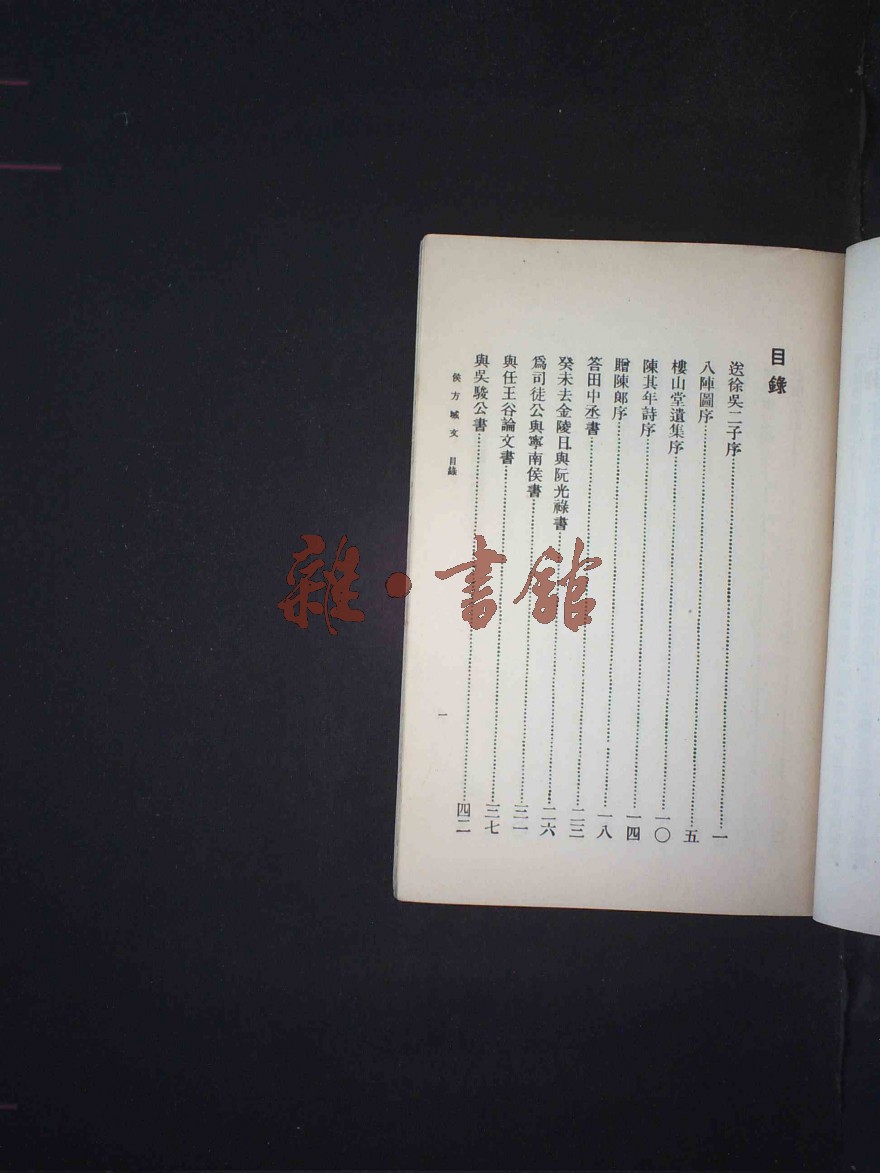 目錄
送徐吳二子序⋯⋯一
八陣圖序⋯⋯五
樓山堂遺集序⋯⋯一〇
陳其年詩序⋯⋯一四
贈陳郞序⋯⋯一八
答田中丞書⋯⋯二三
癸未去金陵日與阮光祿書⋯⋯二六
爲司徒公與寧南侯書⋯⋯三一
與任王谷論文書⋯⋯三七
與吳駿公書⋯⋯四二
侯方域文 目錄 一
雜·書館